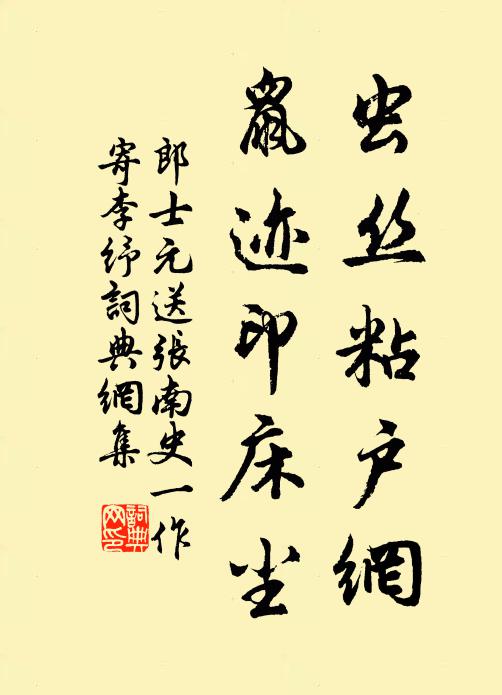 虫丝粘户網
鼠迹印床尘
郎士元送張南史一作
寄李纾詞典網集
詞典网印